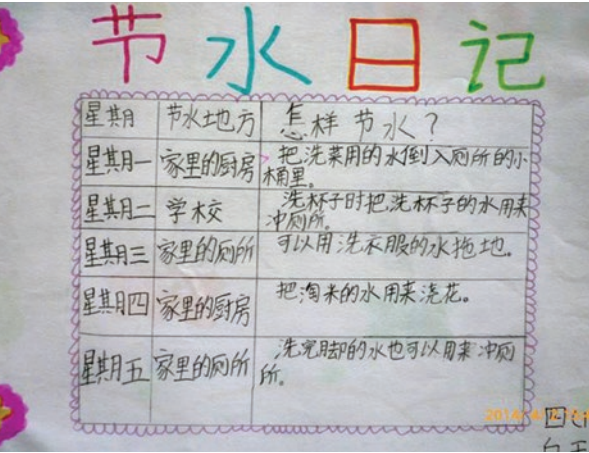 节水日记
星期 节水地方 怎样节水？
星期一 家里的厨房 把洗菜用的水倒入厕所的小
桶里。
星期二 学校 洗杯子时把洗杯子的水用来
冲厕所。
星期三 家里的厕所 可以用洗衣服的水拖地。
星期四 家里的厨房 把淘米的水用来浇花。
星期五 家里的厕所 洗完脚的水也可以用来冲厕
所。
四